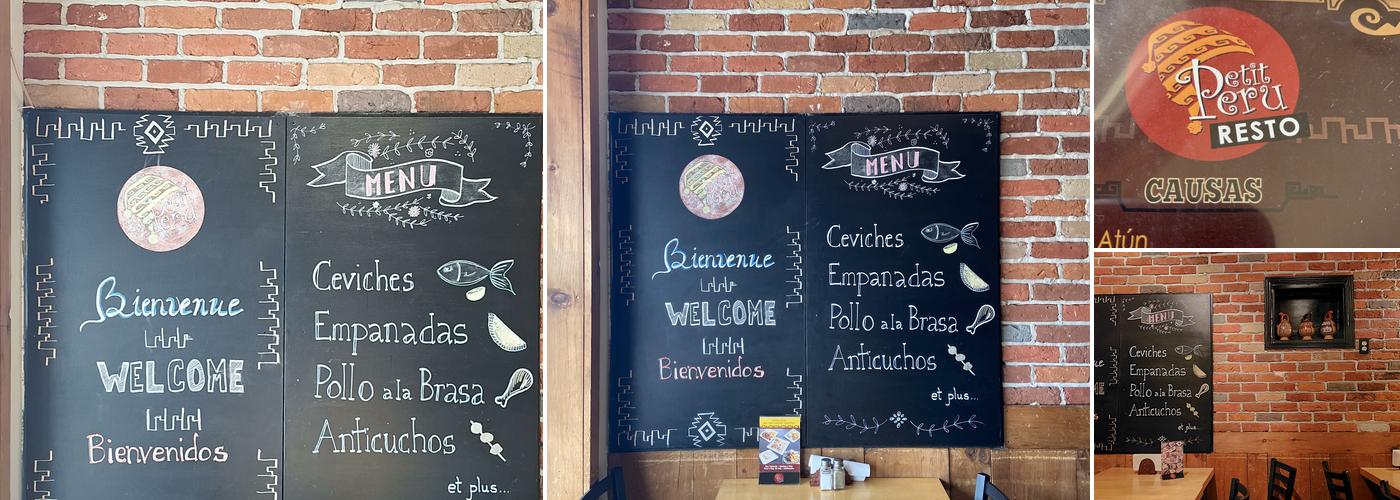 Bienvenue
WELCOME
Bienvenidos
MENU
Ceviches
Empanadas
Pollo a la Brasa
Anticuchos
et plus...
Bienvenue
WELCOME
Bienvenidos
MENU
Ceviches
Empanadas
Pollo a la Brasa
Anticuchos
et plus...
Petit
Peru
RESTO
CAUSAS
Atún
MENU
Ceviches
Empanadas
Pollo a la Brasa
Anticuchos
et plus...